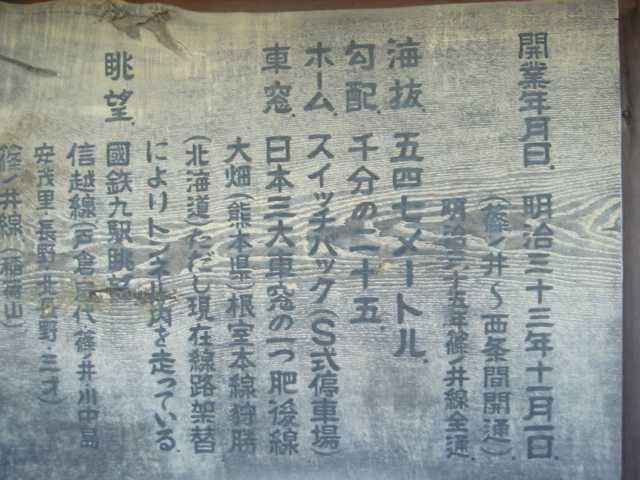 開業年月日 明治三十三年十一月一日
(篠ノ井～西条間開通)
明治三十五年篠ノ井線全通
海抜 五四七メートル
勾配 千分の二十五
ホーム スイッチバック(S式停車場)
車窓 日本三大車窓の一つ肥後線
大畑(熊本県)根室本線狩勝
(北海道)ただし現在線路架替
によりトンネル内を走っている
眺望 國鉄九駅眺望
信越線(戸倉 屋代 篠ノ井 川中島
安茂里・長野・北長野・三才)
篠ノ井線(稲荷山)